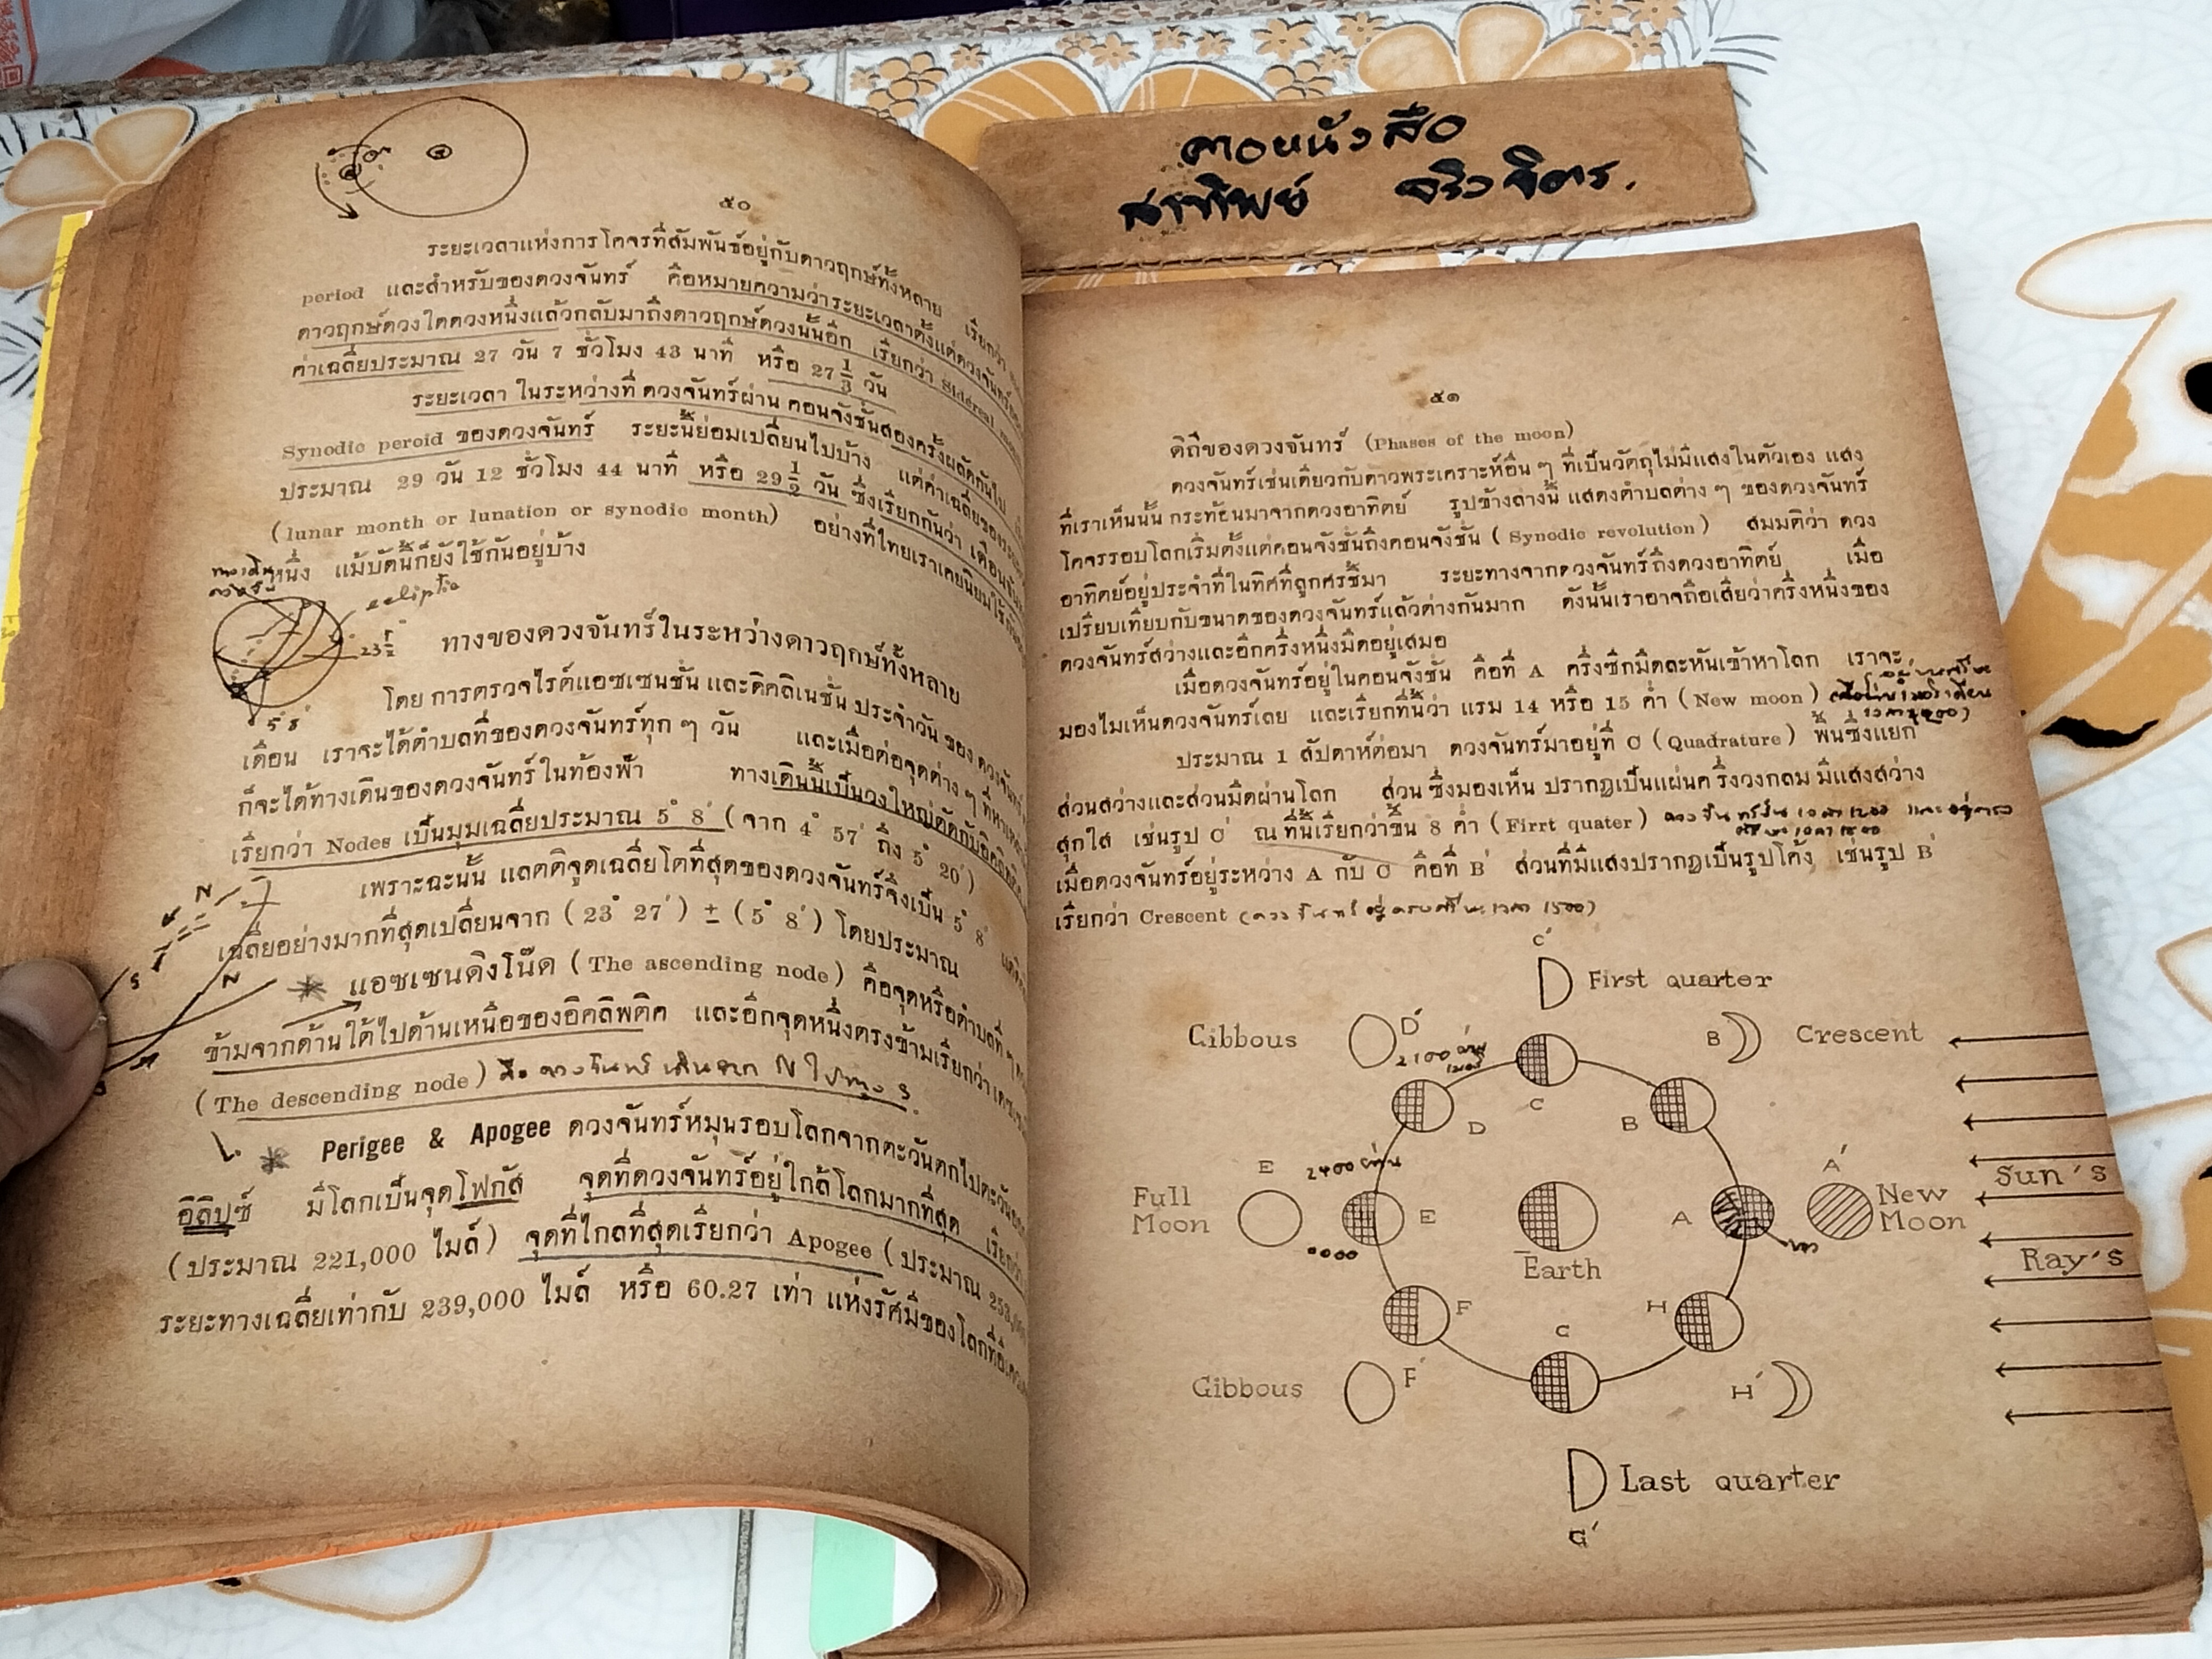 ๕๐
ระยะเวลาแห่งการโคจรที่สัมพันธ์อยู่กับดาวฤกษ์ทั้งหลาย เรียกว่า
period และสำหรับของดวงจันทร์ คือหมายความว่าระยะเวลาตั้งแต่ดวงจันทร์
ดาวฤกษ์ดวงใดดวงหนึ่งแล้วกลับมาถึงดาวฤกษ์ดวงนั้นอีก เรียกว่า Sidereal
ค่าเฉลี่ยประมาณ 27 วัน 7 ชั่วโมง 43 นาที หรือ 27 1/3 วัน
ระยะเวลา ในระหว่างที่ ดวงจันทร์ผ่าน คอนจังชั่นสองครั้งผลัดกันไป
Synodic peroid ของดวงจันทร์ ระยะนี้ย่อมเปลี่ยนไปบ้าง แต่ค่าเฉลี่ยของ
ประมาณ 29 วัน 12 ชั่วโมง 44 นาที หรือ 29 1/2 วัน ซึ่งเรียกกันว่า เดือน
(lunar month or lunation or synodic month) อย่างที่ไทยเราเคยนิยมใช้
หนึ่ง แม้บัดนี้ก็ยังใช้กันอยู่บ้าง
ecliptic
23 1/2
5° 8'
ทางของดวงจันทร์ในระหว่างดาวฤกษ์ทั้งหลาย
โดย การตรวจไรค์แอซเซนชั่น และดิคลิเนชั่น ประจำวัน ของ ดวงจันทร์
เดือน เราจะได้ตำบลที่ของดวงจันทร์ทุก ๆ วัน และเมื่อต่อจุดต่าง ๆ ที่
ก็จะได้ทางเดินของดวงจันทร์ในท้องฟ้า ทางเดินนี้เป็นวงใหญ่ตัดกับอิคลิพติค
เรียกว่า Nodes เป็นมุมเฉลี่ยประมาณ 5° 8' (จาก 4° 57' ถึง 5° 20')
เพราะฉะนั้น แลตติจูดเฉลี่ยโตที่สุดของดวงจันทร์จึงเป็น 5° 8'
เฉลี่ยอย่างมากที่สุดเปลี่ยนจาก (23° 27') ± (5° 8') โดยประมาณ
N
S
N
* แอซเซนดิงโน๊ด (The ascending node) คือจุดหรือตำบลที่
ข้ามจากด้านใต้ไปด้านเหนือของอิคลิพติค และอีกจุดหนึ่งตรงข้ามเรียกว่า
(The descending node) คือ ดวงจันทร์ เดินจาก N ไปทาง S.
* Perigee & Apogee ดวงจันทร์หมุนรอบโลกจากตะวันตกไปตะวันออก
อิลิปซ์ มีโลกเป็นจุดโฟกัส จุดที่ดวงจันทร์อยู่ใกล้โลกมากที่สุด
(ประมาณ 221,000 ไมล์) จุดที่ไกลที่สุดเรียกว่า Apogee (ประมาณ
ระยะทางเฉลี่ยเท่ากับ 239,000 ไมล์ หรือ 60.27 เท่า แห่งรัศมีของโลกที่
คอหนังสือ
สาทิพย์ จริงจิตร.
๕๑
ดิถีของดวงจันทร์ (Phases of the moon)
ดวงจันทร์เช่นเดียวกับดาวพระเคราะห์อื่น ๆ ที่เป็นวัตถุไม่มีแสงในตัวเอง แสง
ที่เราเห็นนั้น กระท้อนมาจากดวงอาทิตย์ รูปข้างล่างนี้ แสดงตำบลต่าง ๆ ของดวงจันทร์
โคจรรอบโลกเริ่มตั้งแต่คอนจังชั่นถึงคอนจังชั่น (Synodic revolution) สมมติว่า ดวง
อาทิตย์อยู่ประจำที่ในทิศที่ถูกศรชี้มา ระยะทางจากดวงจันทร์ถึงดวงอาทิตย์ เมื่อ
เปรียบเทียบกับขนาดของดวงจันทร์แล้วต่างกันมาก ดังนั้นเราอาจถือเสียว่าครึ่งหนึ่งของ
ดวงจันทร์สว่างและอีกครึ่งหนึ่งมืดอยู่เสมอ
เมื่อดวงจันทร์อยู่ในคอนจังชั่น คือที่ A ครึ่งซีกมืดจะหันเข้าหาโลก เราจะ
มองไม่เห็นดวงจันทร์เลย และเรียกที่นี้ว่า แรม 14 หรือ 15 ค่ำ (New moon)
ประมาณ 1 สัปดาห์ต่อมา ดวงจันทร์มาอยู่ที่ C (Quadrature) พื้นซึ่งแยก
ส่วนสว่างและส่วนมืดผ่านโลก ส่วน ซึ่งมองเห็น ปรากฏเป็นแผ่นครึ่งวงกลม มีแสงสว่าง
สุกใส เช่นรูป C' ณ ที่นี้เรียกว่าขึ้น 8 ค่ำ (Firrt quater)
เมื่อดวงจันทร์อยู่ระหว่าง A กับ C คือที่ B' ส่วนที่มีแสงปรากฏเป็นรูปโค้ง เช่นรูป B'
เรียกว่า Crescent
C'
First quarter
Gibbous D'
B Crescent
2100
C
D B
E 2400
A'
Full Moon
E
A
New Moon
Sun's
0000
Earth
Ray's
F H
C
Gibbous F'
H'
Last quarter
G'